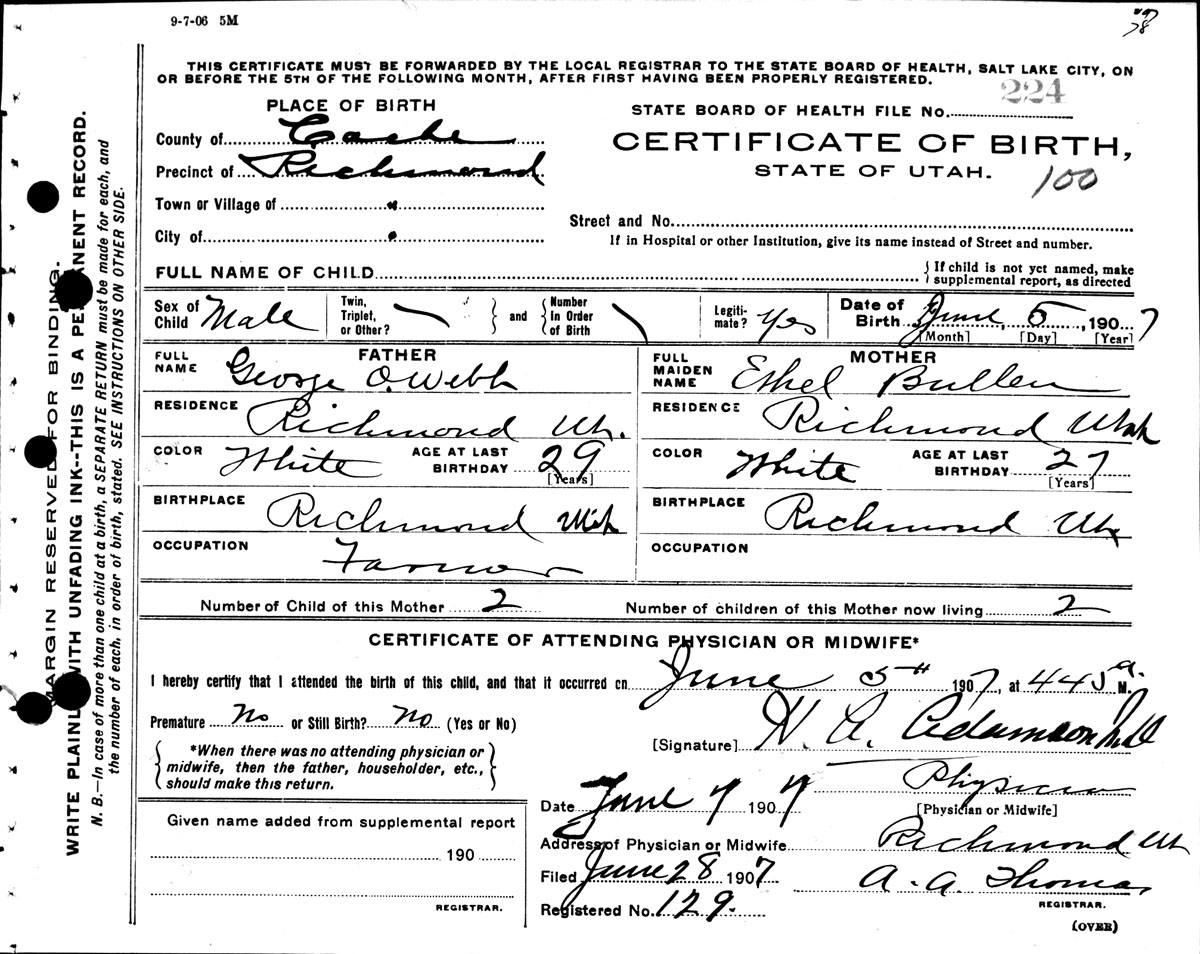 9-7-06 5M
THIS CERTIFICATE MUST BE FORWARDED BY THE LOCAL REGISTRAR TO THE STATE BOARD OF HEALTH, SALT LAKE CITY, ON
OR BEFORE THE 5TH OF THE FOLLOWING MONTH, AFTER FIRST HAVING BEEN PROPERLY REGISTERED.
PLACE OF BIRTH
STATE BOARD OF HEALTH FILE No. 224
County of Cache
CERTIFICATE OF BIRTH,
Precinct of Richmond
STATE OF UTAH.
100
Town or Village of "
Street and No.
City of
If in Hospital or other Institution, give its name instead of Street and number.
FULL NAME OF CHILD
{ If child is not yet named, make
supplemental report, as directed
Sex of Child Male
Twin, Triplet, or Other? } and { Number In Order of Birth
Legiti-mate? Yes
Date of Birth June, 5, 1907
[Month] [Day] [Year]
FATHER
FULL NAME George O. Webb
RESIDENCE Richmond Ut.
COLOR White AGE AT LAST BIRTHDAY 29
[Years]
BIRTHPLACE Richmond Utah
OCCUPATION Farmer
MOTHER
FULL MAIDEN NAME Ethel Bullen
RESIDENCE Richmond Utah
COLOR White AGE AT LAST BIRTHDAY 27
[Years]
BIRTHPLACE Richmond Ut
OCCUPATION
Number of Child of this Mother 2 Number of children of this Mother now living 2
CERTIFICATE OF ATTENDING PHYSICIAN OR MIDWIFE*
I hereby certify that I attended the birth of this child, and that it occurred on June 5th 1907, at 445 a. M.
Premature No or Still Birth? No (Yes or No)
[Signature] H. A. Adamson M.D
*When there was no attending physician or
midwife, then the father, householder, etc.,
should make this return.
Physician
[Physician or Midwife]
Date June 7 1907
Address of Physician or Midwife Richmond Ut
Filed June 28 1907 A. A. Thomas
REGISTRAR.
Registered No. 129.
(OVER)
Given name added from supplemental report
190
REGISTRAR.
MARGIN RESERVED FOR BINDING.
WRITE PLAINLY WITH UNFADING INK--THIS IS A PERMANENT RECORD.
N. B.—In case of more than one child at a birth, a SEPARATE RETURN must be made for each, and
the number of each, in order of birth, stated. SEE INSTRUCTIONS ON OTHER SIDE.